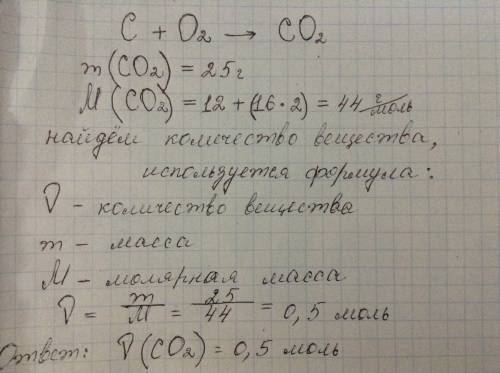 C + O₂ → CO₂
m(CO₂) = 25г
M(CO₂) = 12 + (16·2) = 44 г/моль
найдём количество вещества,
используется формула:
ν – количество вещества
m – масса
M – молярная масса
ν = m/M = 25/44 = 0,5 моль
Ответ: ν(CO₂) = 0,5 моль